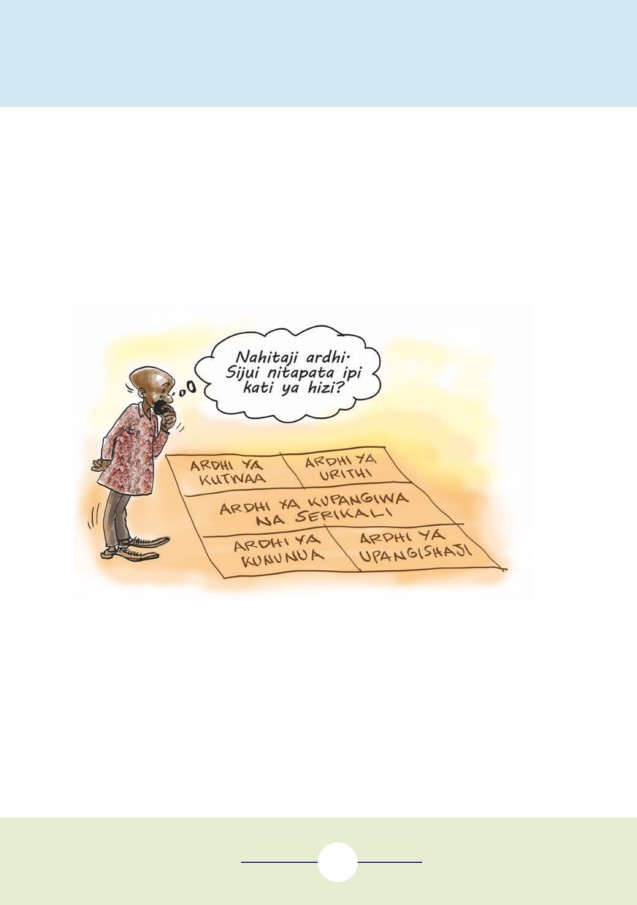 Nahitaji ardhi.
Sijui nitapata ipi
kati ya hizi?
ARDHI YA
KUTWAA
ARDHI YA
URITHI
ARDHI YA KUPANGIWA
NA SERIKALI
ARDHI YA
KUNUNUA
ARDHI YA
UPANGISHAJI